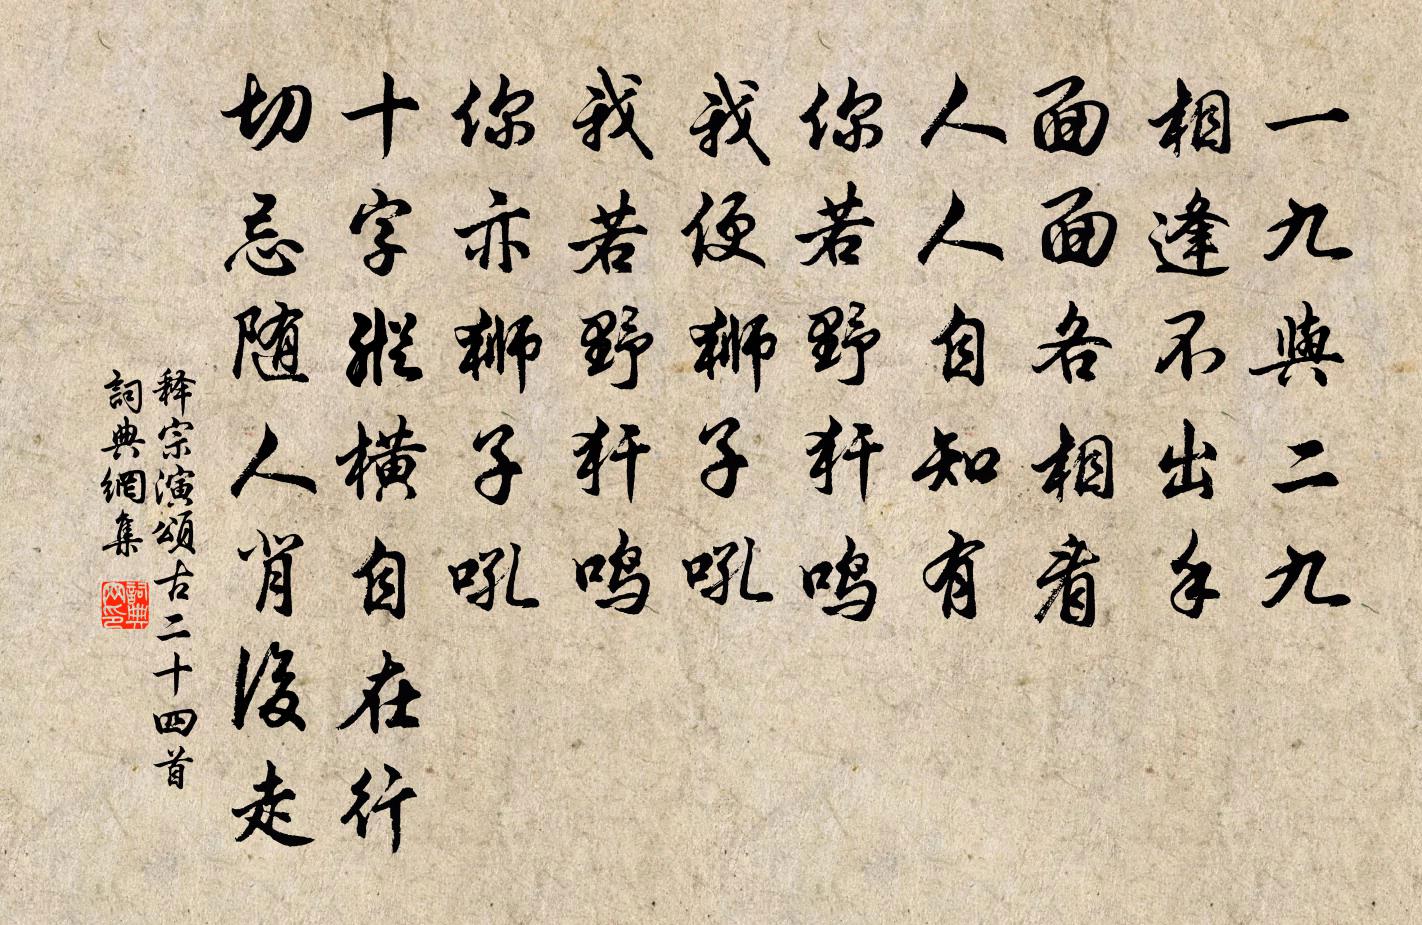 一九與二九
相逢不出手
面面各相看
人人自知有
你若野犴鳴
我便獅子吼
我若野犴鳴
你亦獅子吼
十字縱橫自在行
切忌随人背後走
释宗演頌古二十四首
詞典網集